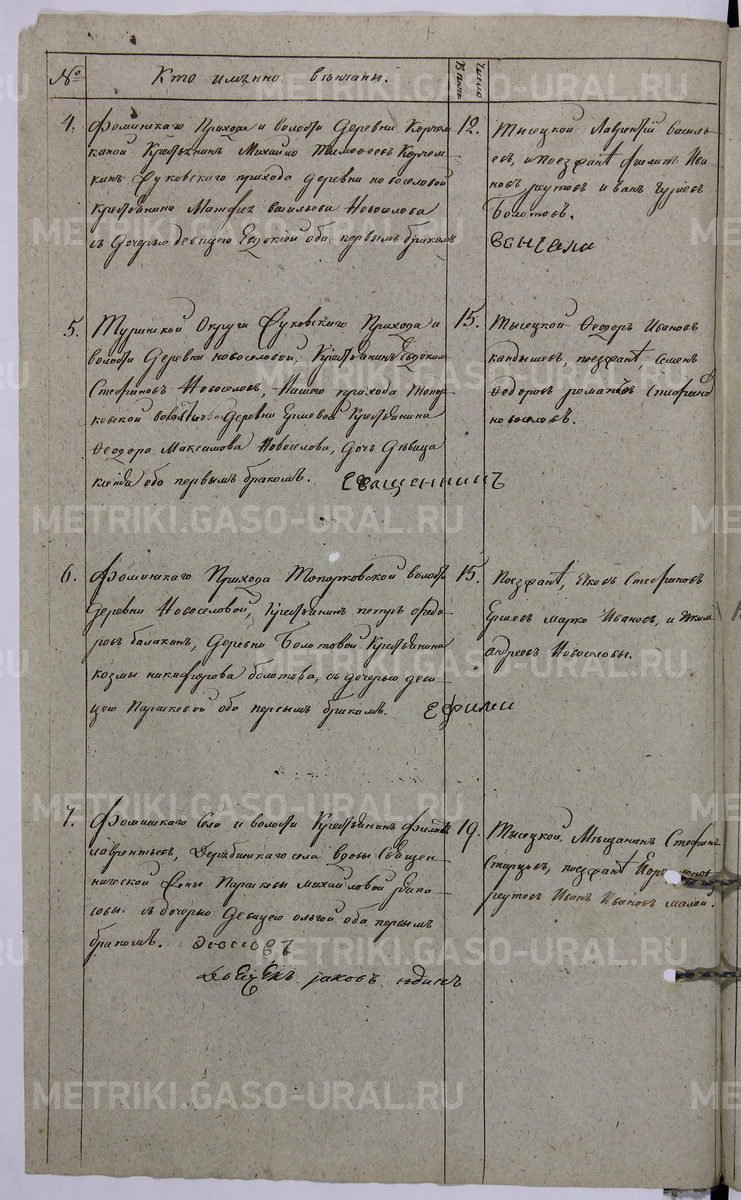 № Кто имѣнно вѣнчаны. Число Вѣнча
4. Фоминскаго Прихода и волости Деревни Корчем
киной Крестьянинъ Михайло Тимофеевъ Корчем
кинъ Куковскаго прихода деревни новоселовой
крестьянина Матфея васильева Новоселова
съ Дочерью девицею Евдокiею оба первымъ бракомъ
12. Тысецкой Лаврентiй василь
евъ, и Поезжанѣ филипъ Ива
новъ реутовъ и иванъ
Болотовъ.
вѣнчали
5. Туринской Округи Куковскаго Прихода и
волости Деревни новоселовой, Крестьянинъ Евдоким
Стефановъ Новоселовъ, Нашего прихода Топор
ковской волости Деревни Ермевой Крестьянина
Ѳеодора Максимова Новоселова, Дочь Дѣвица
оба первымъ бракомъ. Священникъ
15. Тысецкой Ѳеодоръ Ивановъ
кандышевъ, поезжанѣ, семенъ
Ѳедоровъ романъ Стефанов
новоселовъ.
6. Фоминскаго Прихода Топорковской волости
Деревни Новоселовой, Крестьянинъ петръ федо
ровъ балакинъ, Деревни Болотовой Крестьянина
козмы никифорова болотова, съ дочерью деви
цею Параскевой оба первымъ бракомъ. Ефими
15. Поезжанѣ, Яковъ Стефановъ
Ершовъ марко Ивановъ, и Яким
андреевъ Новоселовы.
7. Фоминскаго Села и волости Крестьянинъ
лаврентьевъ, Дерябинскаго села вдовы Священ
нической жены Парасковы михайловой
съ дочерью девицею ольгой оба первымъ
бракомъ.
яковъ юдинъ
19. Тысецкой, Мѣщанинъ Стефанъ
Старцовъ, поезжанѣ
реутовъ Иванъ Ивановъ малой.
METRIKI.GASO-URAL.RU